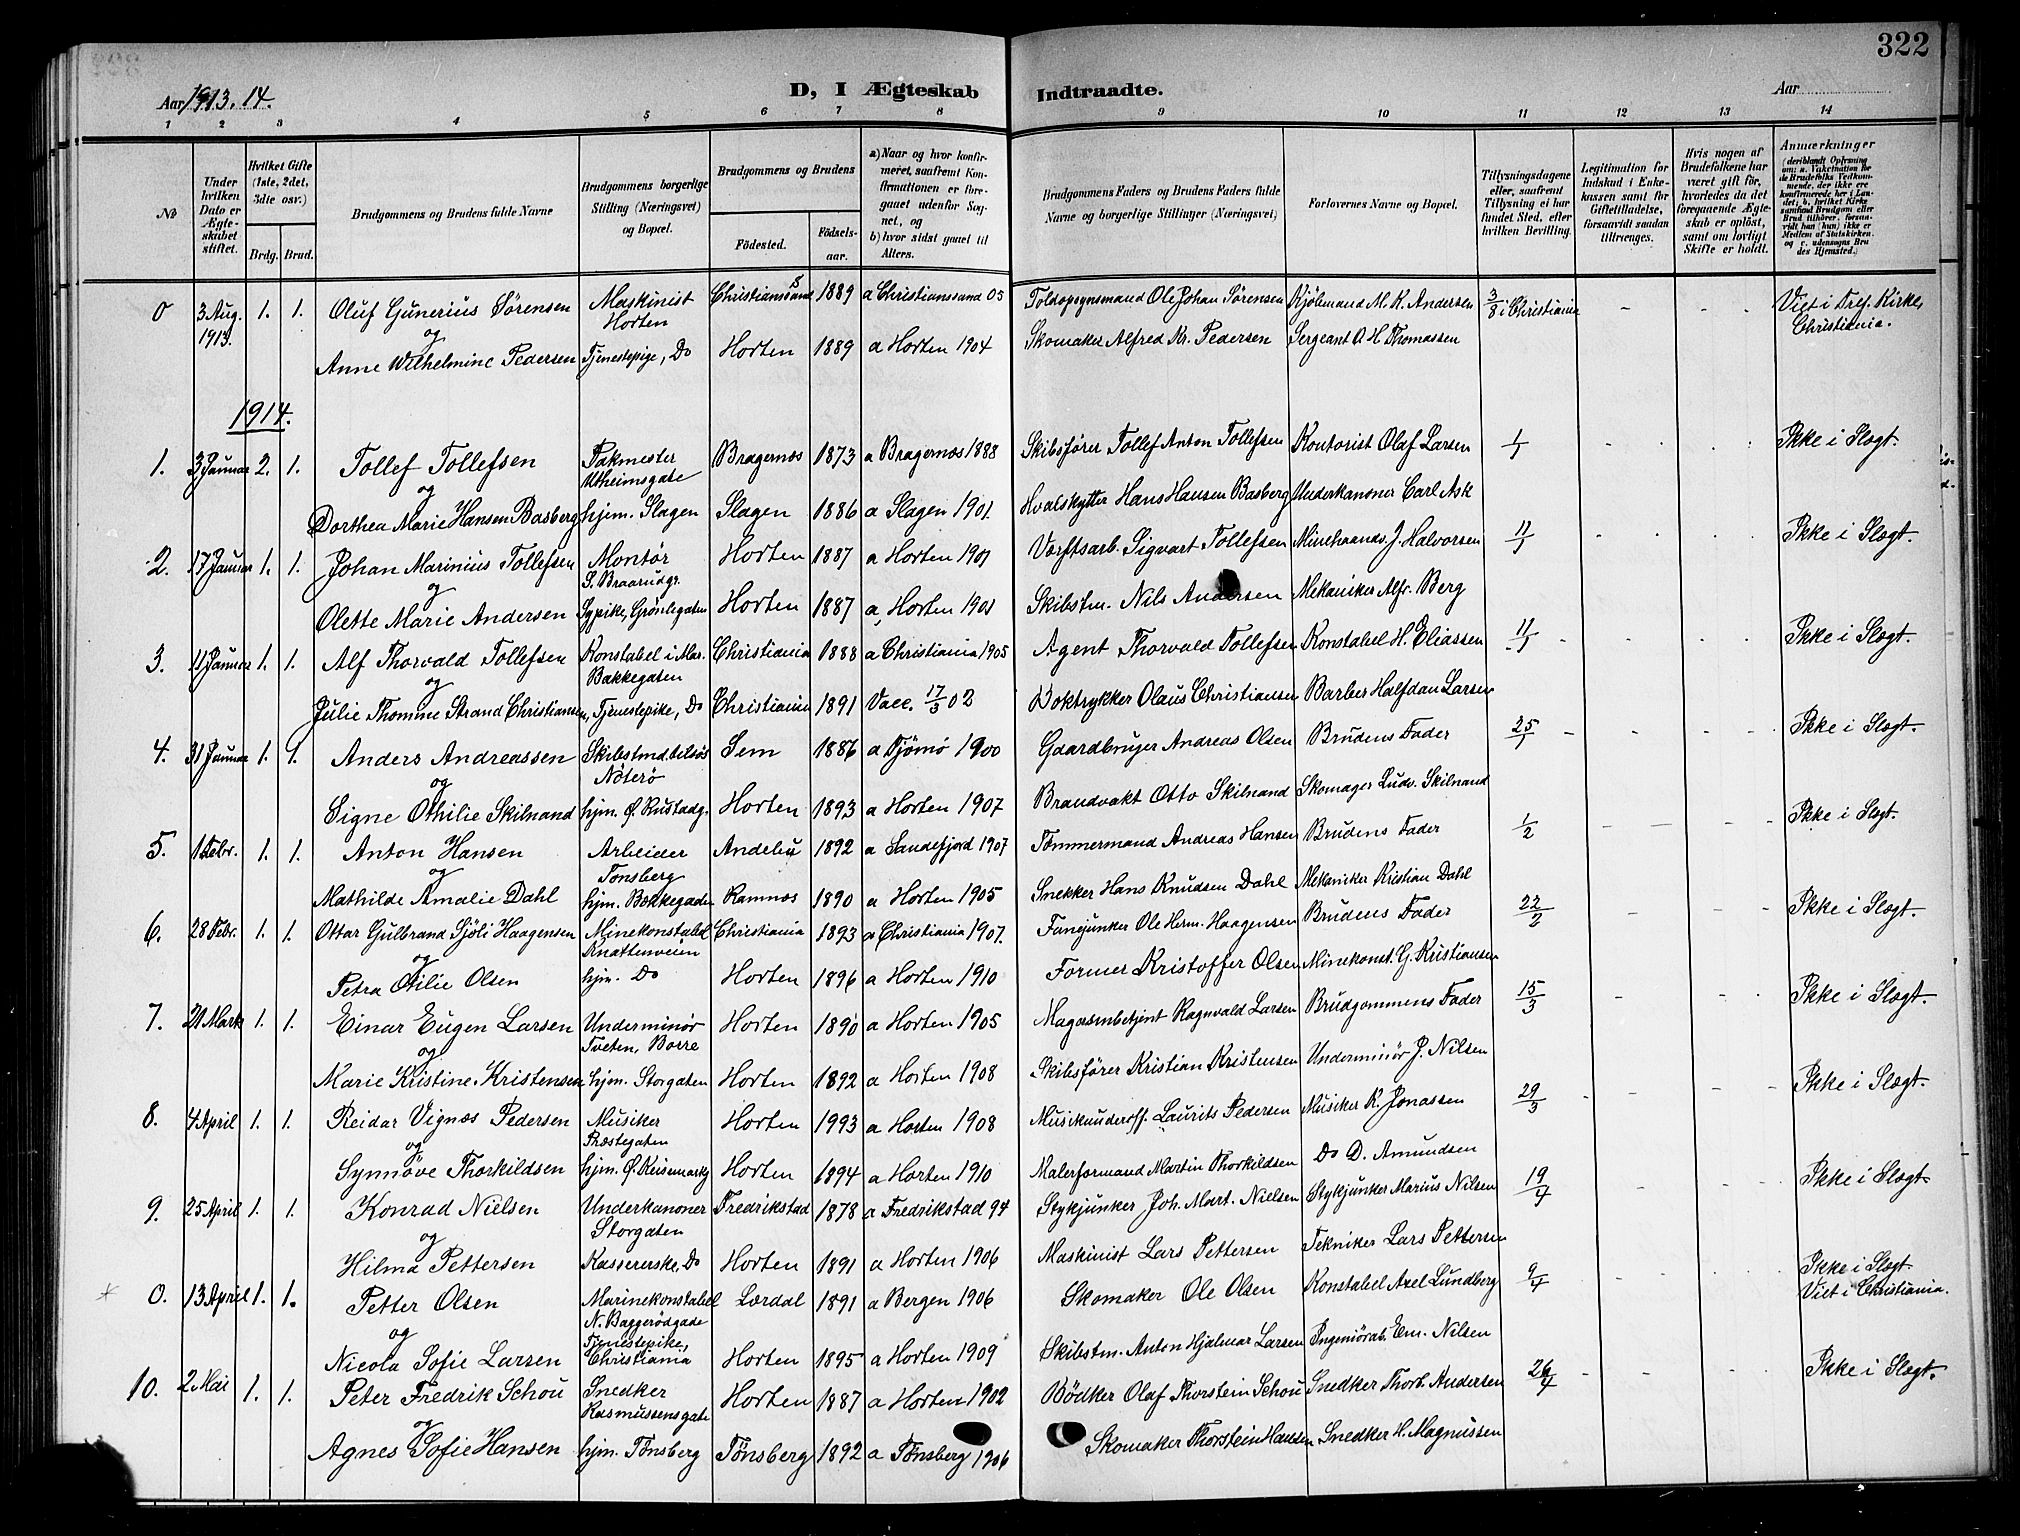 322
Aar 1913. 14.
D, I Ægteskab Indtraadte.
Aar
1 2 3 4 5 6 7 8 9 10 11 12 13 14
No
Under hvilken Dato er Ægteskabet stiftet.
Hvilket Gifte (1ste, 2det, 3die osv.)
Brdg. Brud.
Brudgommens og Brudens fulde Navne
Brudgommens borgerlige Stilling (Næringsvei) og Bopæl.
Brudgommens og Brudens
Fødested. Fødselsaar.
a) Naar og hvor konfirmeret, saafremt Konfirmationen er foregaaet udenfor Sognet, og
b) hvor sidst gaaet til Alters.
Brudgommens Faders og Brudens Faders fulde Navne og borgerlige Stillinger (Næringsvei)
Forlovernes Navne og Bopæl.
Tillysningsdagene eller, saafremt Tillysning ei har fundet Sted, efter hvilken Bevilling.
Legitimation for Indskud i Enkekassen samt for Giftetilladelse, forsaavidt saadan tiltrænges.
Hvis nogen af Brudefolkene har været gift før, hvorledes da det foregaaende Ægteskab er opløst, samt om lovligt Skifte er holdt.
Anmærkninger (deriblandt Oplysning om: a. Vakcination for de Brudefolks Vedkommende, der ikke ere konfirmerede her i Landet; b. hvilket Kirkesamfund Brudgom eller Brud tilhører, forsaavidt han (hun) ikke er Medlem af Statskirken, og c. udensogns Brudes Hjemsted.)
0 3 Aug. 1913. 1. 1. Oluf Gunerius Sørensen Maskinist Horten Christianssand 1889 a Christianssand 05 Toldopsynsmand Ole Johan Sørensen Kjøbmand M. K. Andersen 3/8 i Christiania - - - Viet i Tref. Kirke, Christiania.
og
Anne Wilhelmine Pedersen Tjenestepige, Do Horten 1889 a Horten 1904 Skomaker Alfred Kr. Pedersen Sergeant O. H. Thomassen
1914.
1. 3 Januar 2. 1. Tollef Tollefsen Pakmester Utheimsgate Bragernæs 1873 a Bragernæs 1888 Skibsfører Tollef Anton Tollefsen Kontorist Olaf Larsen 1/1 Ikke i Slægt.
og
Dorthea Marie Hansen Basberg hjm. Slagen Slagen 1886 a Slagen 1901. Hvalskytter Hans Hansen Basberg Underkanoner Carl Ask
2. 17 Januar 1. 1. Johan Marinius Tollefsen Montør S. Braarudgt. Horten 1887 a Horten 1901 Værftsarb. Sigvart Tollefsen Minehaandv. J. Halvorsen 11/1 Ikke i Slægt.
og
Olette Marie Andersen Sypike, Grønligaten Horten 1887 a Horten 1901 Skibstm. Nils Andersen Mekaniker Alfr. Berg
3. 11 Januar 1. 1. Alf Thorvald Tollefsen Konstabel i Mar. Bakkegaten Christiania 1888 a Christiania 1905 Agent Thorvald Tollefsen Konstabel H. Eliassen 11/1 Ikke i Slægt.
og
Julie Thomine Strand Christiansen, Tjenestepike, Do Christiania 1891 Vacc. 17/3 02 Boktrykker Olaus Christiansen Barber Halfdan Larsen
4. 31 Januar 1. 1. Anders Andreassen Skibstmd. Nøterø Sem 1886 a Tjømø 1900 Gaardbruger Andreas Olsen Brudens Fader 25/1 Ikke i Slægt.
og
Signe Othilie Skilnand hjm. Ø. Rustadg. Horten 1893 a Horten 1907 Brandvakt Otto Skilnand Skomager Ludv. Skilnand
5. 1 Febr. 1. 1. Anton Hansen Arbeider Tønsberg Andebu 1892 a Sandefjord 1907 Tømmermand Andreas Hansen Brudens Fader 1/2 Ikke i Slægt.
og
Mathilde Amalie Dahl hjm. Bakkegaden Ramnæs 1890 a Horten 1905 Snekker Hans Knudsen Dahl Mekaniker Kristian Dahl
6. 28 Febr. 1. 1. Ottar Gulbrand Sjöli Haagensen Minekonstabel Knatteveien Christiania 1893 a Christiania 1907. Fanejunker Ole Herm. Haagensen Brudens Fader 22/2 Ikke i Slægt.
og
Petra Otilie Olsen hjm. Do Horten 1896 a Horten 1910 Former Kristoffer Olsen Minekonst. G. Kristiansen
7. 21 Mark 1. 1. Einar Eugen Larsen Underminør Tveten, Borre Horten 1890 a Horten 1905 Magasinbetjent Ragnvald Larsen Brudgommens Fader 15/3 Ikke i Slægt.
og
Marie Kristine Kristensen hjm. Storgaten Horten 1892 a Horten 1908 Skibsfører Kristian Kristensen Underminør J. Nilsen
8. 4 April 1. 1. Reidar Vignæs Pedersen Musiker Præstegaten Horten 1993 a Horten 1908 Musikunderoff. Laurits Pedersen Musiker K. Jonassen 29/3 Ikke i Slægt.
og
Synnöve Thorkildsen hjm. Ø. Keisemarkg Horten 1894 a Horten 1910 Malerformand Martin Thorkildsen Do D. Amundsen
9. 25 April 1. 1. Konrad Nielsen Underkanoner Storgaten Fredrikstad 1878 a Fredrikstad 94 Stykjunker Joh. Mart. Nielsen Stykjunker Marius Nilsen 19/4 Ikke i Slægt
og
Hilma Pettersen Kassererske, Do Horten 1891 a Horten 1906 Maskinist Lars Pettersen Tekniker Lars Pettersen
0. 13 April 1. 1. Petter Olsen Marinekonstabel N. Baggerødgade Lærdal 1891 a Bergen 1906 Skomaker Ole Olsen Konstabel Axel Lundberg 9/4 Ikke i Slægt. Viet i Christiania.
og
Nicola Sofie Larsen Tjenestepike, Christiania Horten 1895 a Horten 1909 Skibstm. Anton Hjalmar Larsen Ingeniørab. Em. Nilsen
10. 2 Mai 1. 1. Peter Fredrik Schou Snedker Rasmussensgate Horten 1887 a Horten 1902 Bödker Olaf Thorstein Schou Snedker Thorb. Andersen 26/4 Ikke i Slægt.
og
Agnes Sofie Hansen hjm. Tønsberg Tønsberg 1892 a Tønsberg 1906 Skomaker Thorstein Hansen Snedker H. Magnussen